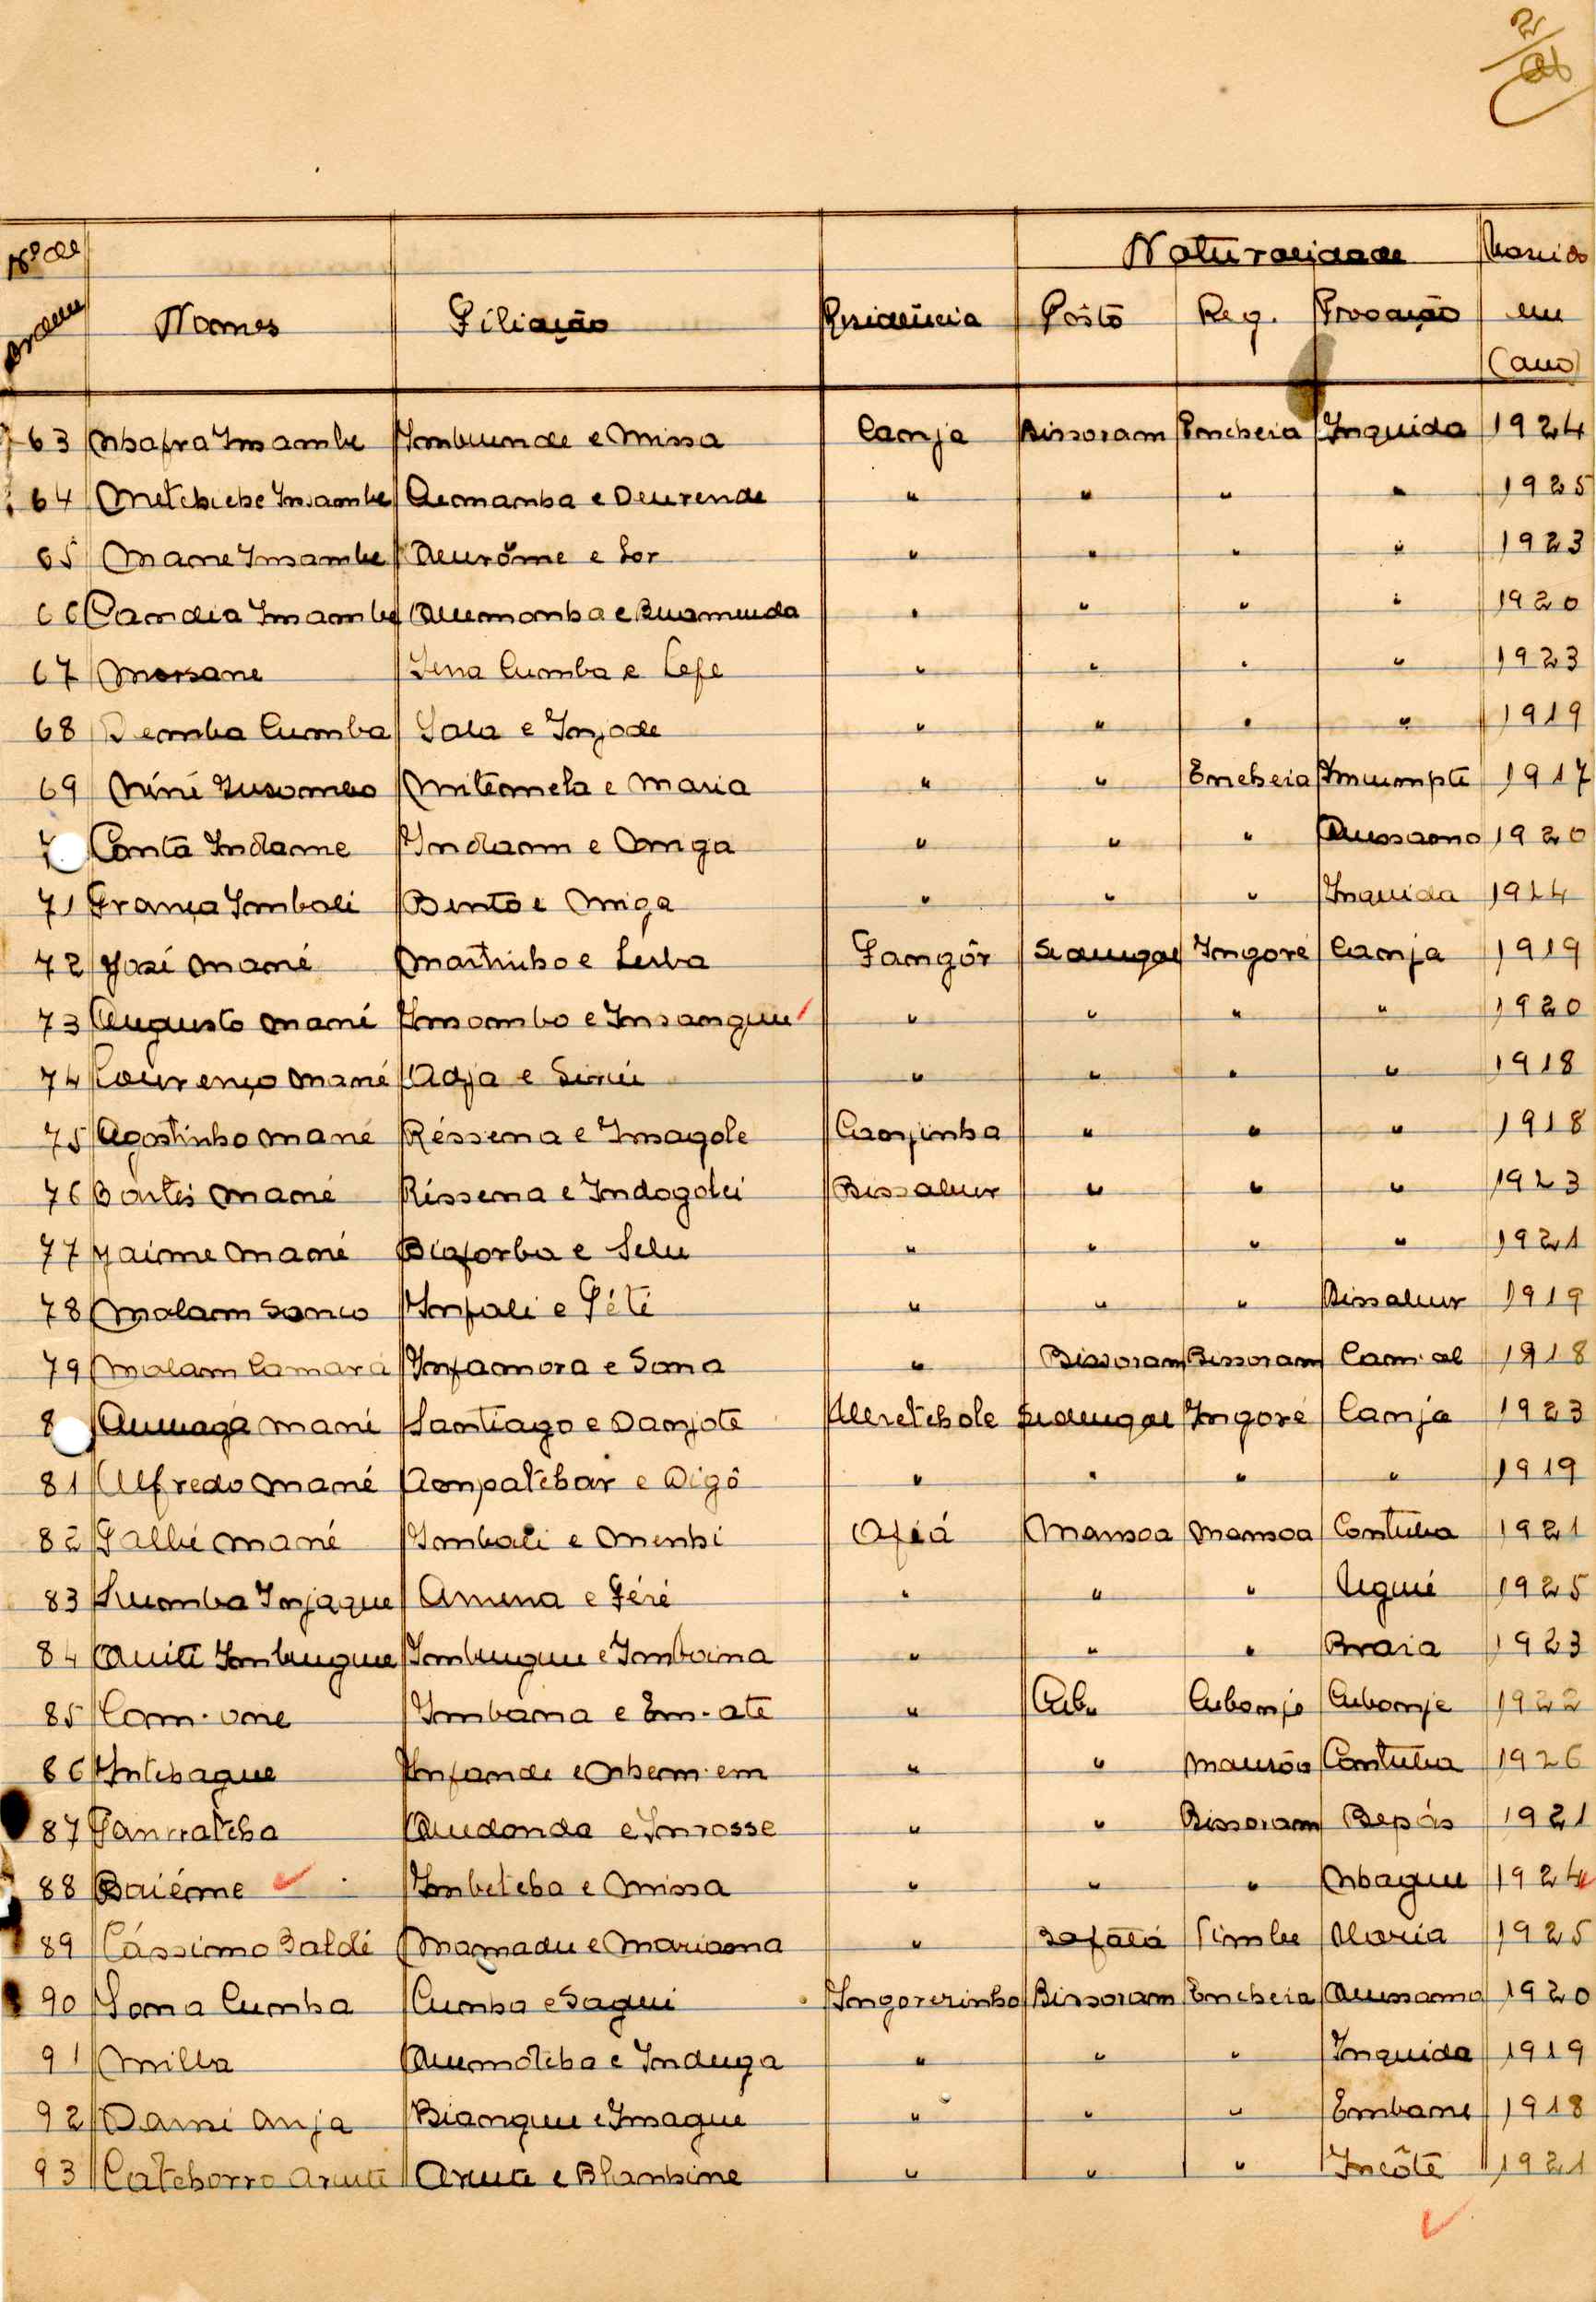 Nº de ordem Nomes Filiação Residência Naturalidade Posto Reg. Povoação Nascido em (ano)
63 Nhafra Insambe Imbunde e Missa Canja Bissoram Encheia Inquida 1924
64 Metchiche Insambe Quemanha e Deurende " " " " 1925
65 Mane Insambe Neurôme e Sor " " " " 1923
66 Candia Insambe Quemonha e Buamunda " " " " 1920
67 Morsane Iena Cumba e Cefe " " " " 1923
68 Demba Cumba Sala e Injode " " " " 1919
69 Mitemela e Maria " " Encheia 1917
Conta Indame Indam e Omga " " " Qussamo 1920
71 França Imbali Bento e Miga " " " Inquida 1924
72 José Mané Martinho e Lesba Fangôr Sedengal Ingoré Canja 1919
73 Augusto Mané Insombo e Insangue " " " " 1920
74 Lourenço Mané Adja e " " " " 1918
75 Agostinho Mané Réssena e Insagole Canjinha " " " 1918
76 Mané Réssena e Indogolei Bissabur " " " 1923
77 Jaime Mané Biaforba e Selu " " " " 1921
78 Malam Sanco Infali e Fété " " " Bissabur 1919
79 Malam Camará Infamora e Sona " Bissoram Bissoram 1918
8 Mané Santiago e Danjote Sedengal Ingoré Canja 1923
81 Alfredo Mané Compatchar e Digô " " " " 1919
82 Galbé Mané Imbali e Menhi Ofiá Mansoa Mansoa Contuba 1921
83 Injaque Amena e Féré " " " Uguié 1925
84 Quité Imbungue Imbungue e Imboina " " " Braia 1923
85 Com-one Imbana e Em-ate " " Cubonje Cubonje 1922
86 Intchague Infande e Nhem-em " " Mansôa Contuba 1926
87 Quidonda e Inrosse " " Bissoram Bepás 1921
88 Baiéme Imbetcha e Missa " " " Nhague 1924
89 Cássimo Baldé Mamadu e Mariama " Bafatá 1925
90 Soma Cumba Cumba e Sagui Ingorezinho Bissoram Encheia Qussamo 1920
91 Milla Quemotcha e Induga " " " Inquida 1919
92 Dansi Anja Biangue e Insague " " " Embane 1918
93 Catchorro Arute Arute e Blanhine " " " Incôte 1921